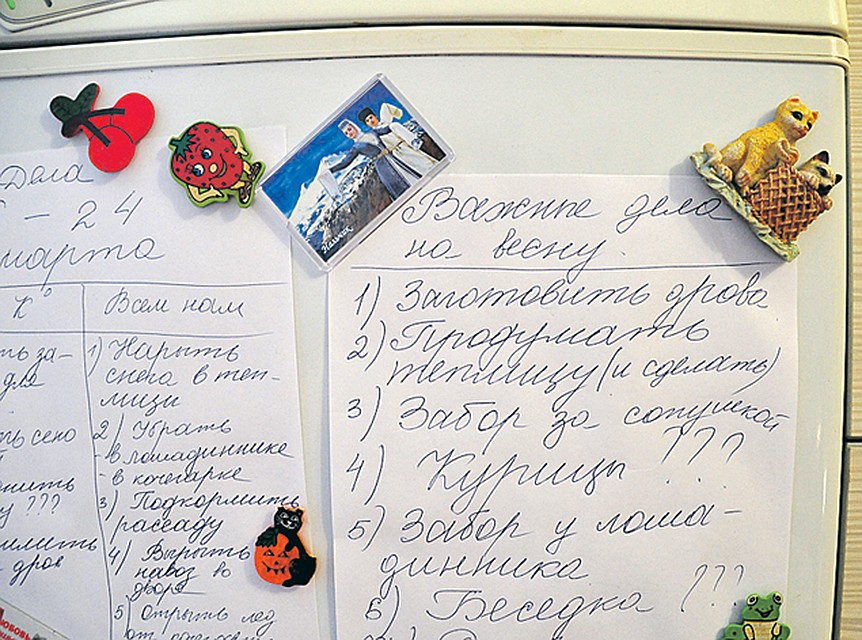 Дела
- 24
марта
К°
Всем нам
ть за-
для
ть сено
???
дров
1) Нарыть
снега в теп-
лицы
2) Убрать
- в лошадиннике
- в кочегарке
3) Подкормить
рассаду
4) Вырыть
навоз во
дворе
5) Открыть лёд
от
Нальчик
Важные дела
на весну.
1) Заготовить дрова
2) Продумать
теплицу (и сделать)
3) Забор за сопушкой
4) Курицы ???
5) Забор у лоша-
динника
6) Беседка ???